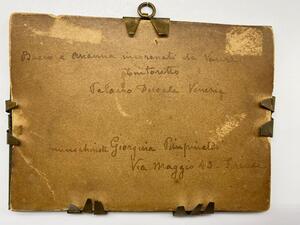 Bacco e Arianna incoronati da Venere
Tintoretto
Palazzo Ducale Venezia
Giorgina
Via Maggio 43 - Firenze